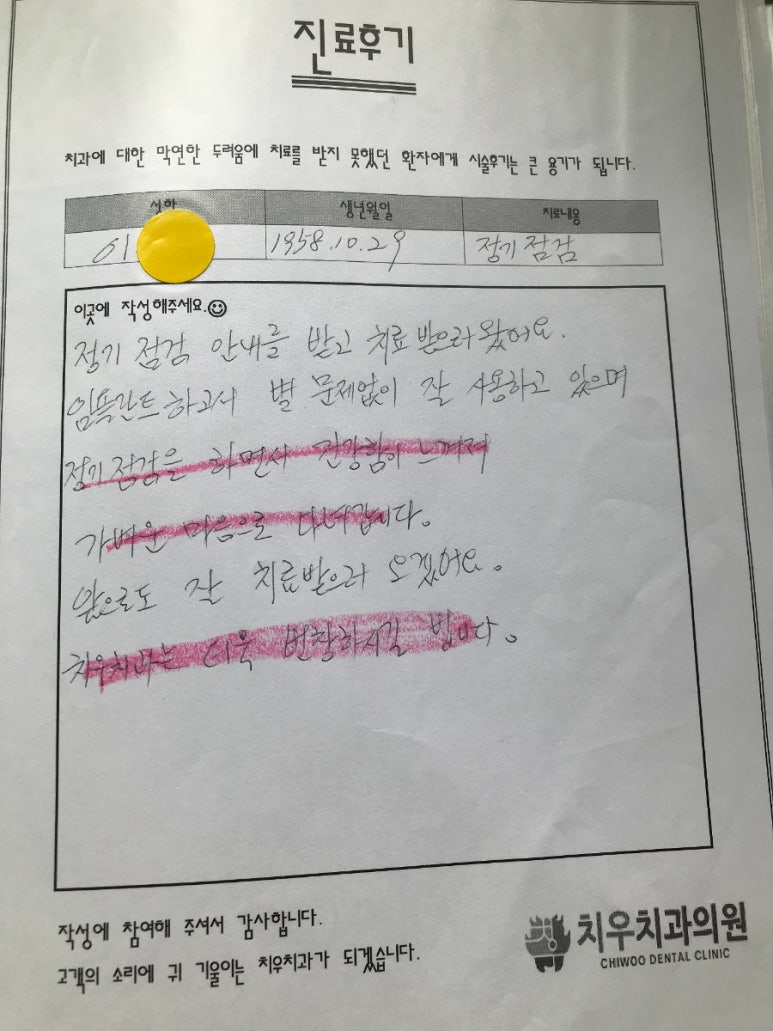 진료후기
치과에 대한 막연한 두려움에 치료를 받지 못했던 환자에게 시술후기는 큰 용기가 됩니다.
생년월일 치료내용
이 1958.10.29 정기 점검
이곳에 작성해주세요.
정기 점검 안내를 받고 치료 받으러 왔어요.
임플란트하고서 별 문제없이 잘 사용하고 있으며
정기점검을 하면서 건강함이 느껴져
가벼운 마음으로 다녀갑니다.
앞으로도 잘 치료받으러 오겠어요.
치우치과는 더욱 번창하시길 빕니다.
작성에 참여해 주셔서 감사합니다.
고객의 소리에 귀 기울이는 치우치과가 되겠습니다.
치우치과의원
CHIWOO DENTAL CLINIC